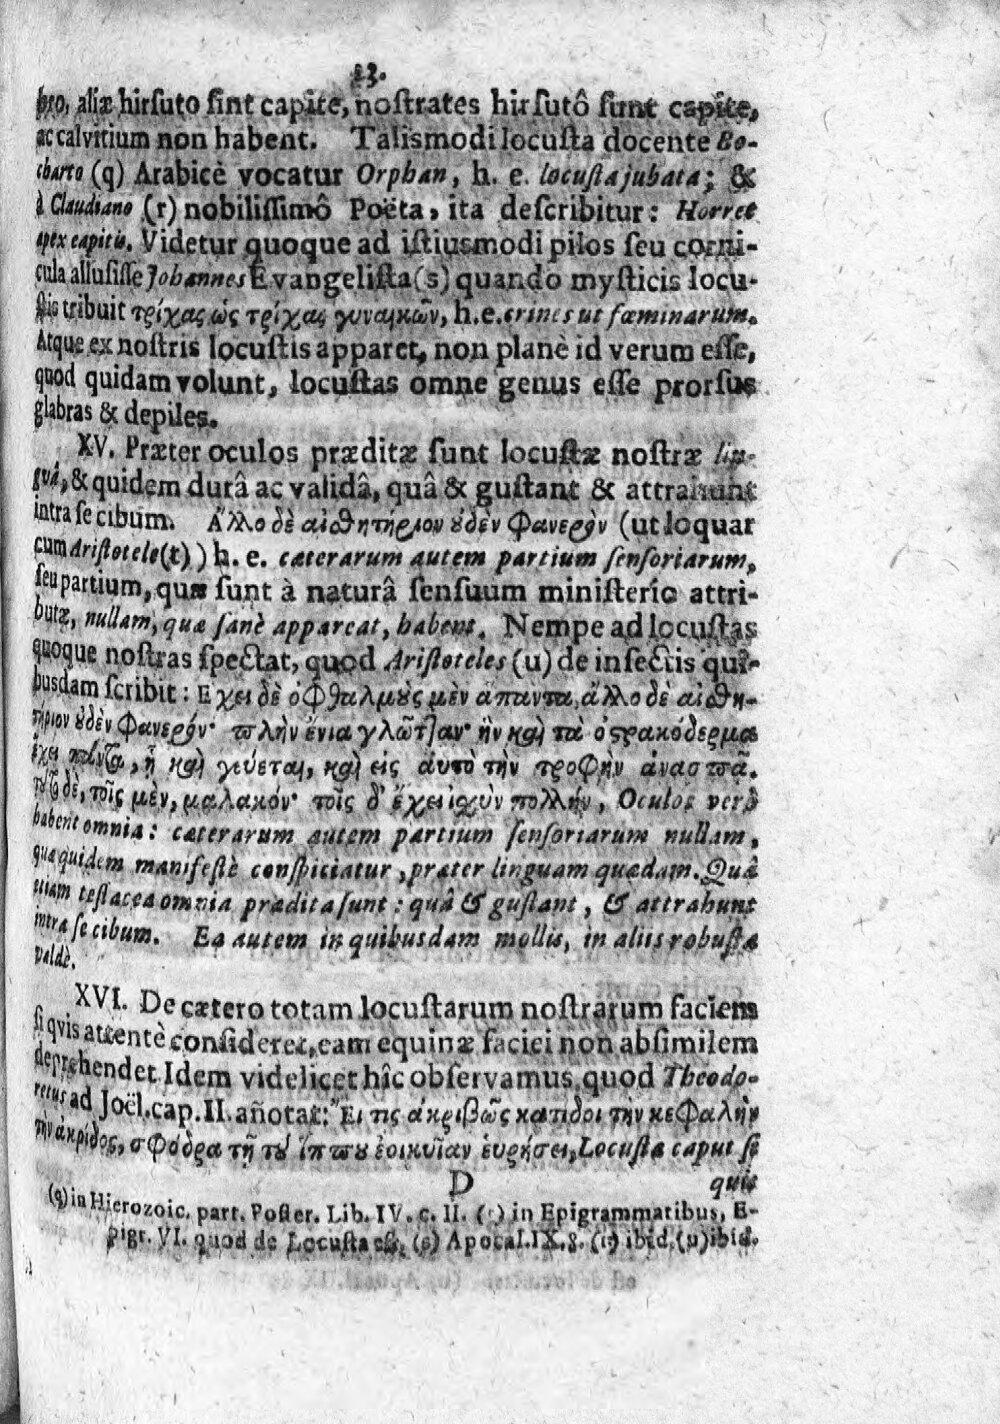 23.
bro, aliæ hirsuto sint capite, nostrates hirsutô sunt capite,
ac calvitium non habent. Talismodi locusta docente Bo-
charto (q) Arabicè vocatur Orphan, h. e. locusta jubata; &
à Claudiano (r) nobilissimô Poëta, ita describitur: Horret
apex capitis. Videtur quoque ad istiusmodi pilos seu corni-
cula allusisse Johannes Evangelista (s) quando mysticis locu-
stis tribuit τρίχας ὡς τρίχας γυναικῶν, h.e. crines ut fœminarum.
Atque ex nostris locustis apparet, non planè id verum esse,
quod quidam volunt, locustas omne genus esse prorsus
glabras & depiles.
XV. Præter oculos præditæ sunt locustæ nostræ lin-
guâ, & quidem durâ ac validâ, quâ & gustant & attrahunt
intra se cibum. Ἄλλο δὲ αἰσθητήριον ȣδὲν Φανερὸν (ut loquar
cum Aristotele (t)) h. e. cæterarum autem partium sensoriarum,
seu partium, quæ sunt à naturâ sensuum ministerio attri-
butæ, nullam, quæ sanè appareat, habent. Nempe ad locustas
quoque nostras spectat, quod Aristoteles (u) de insectis qui-
busdam scribit: Εχει δὲ ὀφθαλμȣ̀ς μὲν ἅπαντα, ἄλλο δὲ αἰσθη-
τήριον ȣδὲν Φανερόν· πλὴν ἔνια γλῶτταν· ἣν καὶ τὰ ὀστρακόδερμα
ἔχει πάντα, ᾗ καὶ γεύεται, καὶ εἰς αὑτὸ τὴν τροφὴν ἀνασπᾶ.
τȣ̃το δὲ, τοῖς μὲν, μαλακόν· τοῖς δ' ἔχει ἰχὺν πολλήν, Oculos verò
habent omnia: cæterarum autem partium sensoriarum nullam,
quæ quidem manifestè conspiciatur, præter linguam quædam. Quâ
etiam testacea omnia prædita sunt: quâ & gustant, & attrahunt
intra se cibum. Ea autem in quibusdam mollis, in aliis robusta
valdè.
XVI. De cætero totam locustarum nostrarum faciem
si qvis attentè consideret, eam equinæ faciei non absimilem
deprehendet. Idem videlicet hîc observamus, quod Theodo-
retus ad Joël. cap. II. añotat: Ἔι τις ἀκριβῶς κατίδοι τὴν κεφαλὴν
τὴν ἀκρίδος, σφόδρα τῇ τȣ͂ ἵππȣ ἐοικυῖαν ἑυρήσει, Locustæ caput si
D quis
(q) in Hierozoic. part. Poster. Lib. IV. c. II. (r) in Epigrammatibus, E-
pigr. VI. quod de Locusta est, (s) Apocal. IX. 8. (t) ibid. (u) ibid.